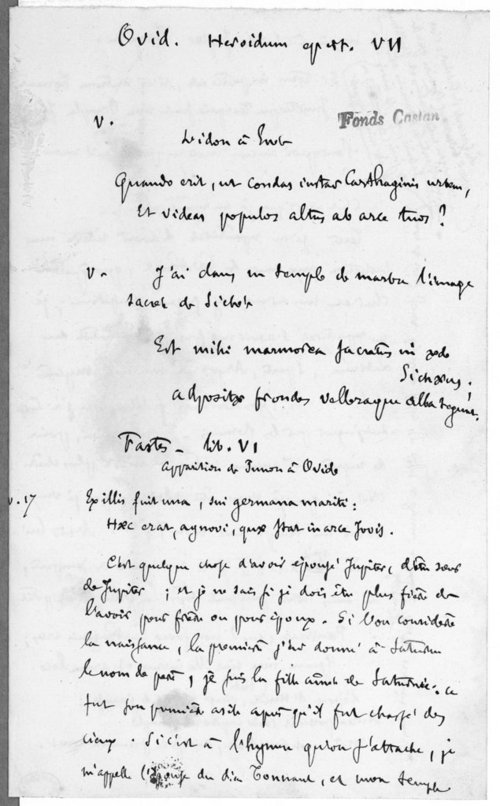 Ovid. Heroidum epist. VII
Fonds Castan
v.
Didon à Enée
Quando erit, ut condas instar Carthaginis urbem,
Et videas populos altus ab arce tuos?
v. J'ai dans un temple de marbre l'image
sacrée de Sichée
Est mihi marmorea sacratus in æde
Sichæus;
adpositæ frondes velleraque alba tegunt.
Fastes - lib. VI
apparition de Junon à Ovide
v. 17 Ex illis fuit una, sui germana mariti:
Hæc erat, agnovi, quæ stat in arce Jovis.
C'est quelque chose d'avoir épousé Jupiter, d'être sœur
de Jupiter; et je ne sais si je dois être plus fière de
l'avoir pour frère ou pour époux. Si l'on considère
la naissance, la première j'ai donné à Saturne
le nom de père, je suis la fille aînée de Saturne. Ce
fut son premier asile après qu'il fut chassé des
cieux. Si c'est à l'hymen qu'on s'attache, je
m'appelle l'épouse du dieu Tonnant, et mon temple